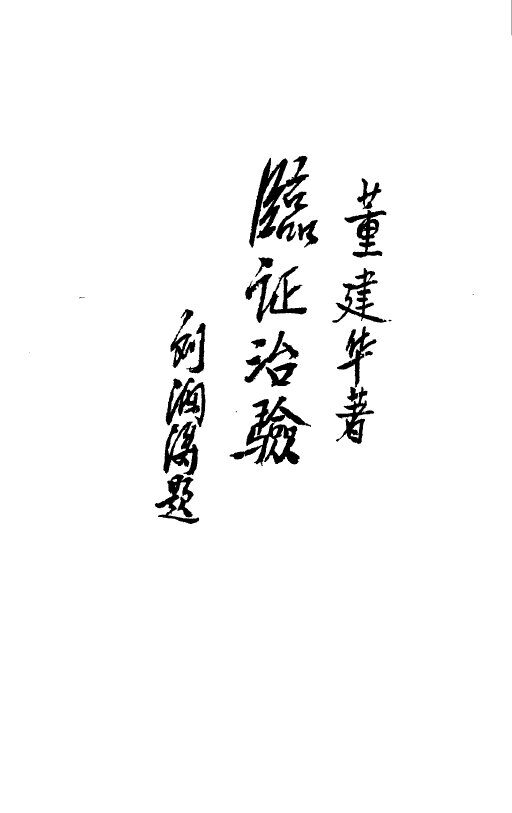 董建华著
臨证治驗
刘渊溪题